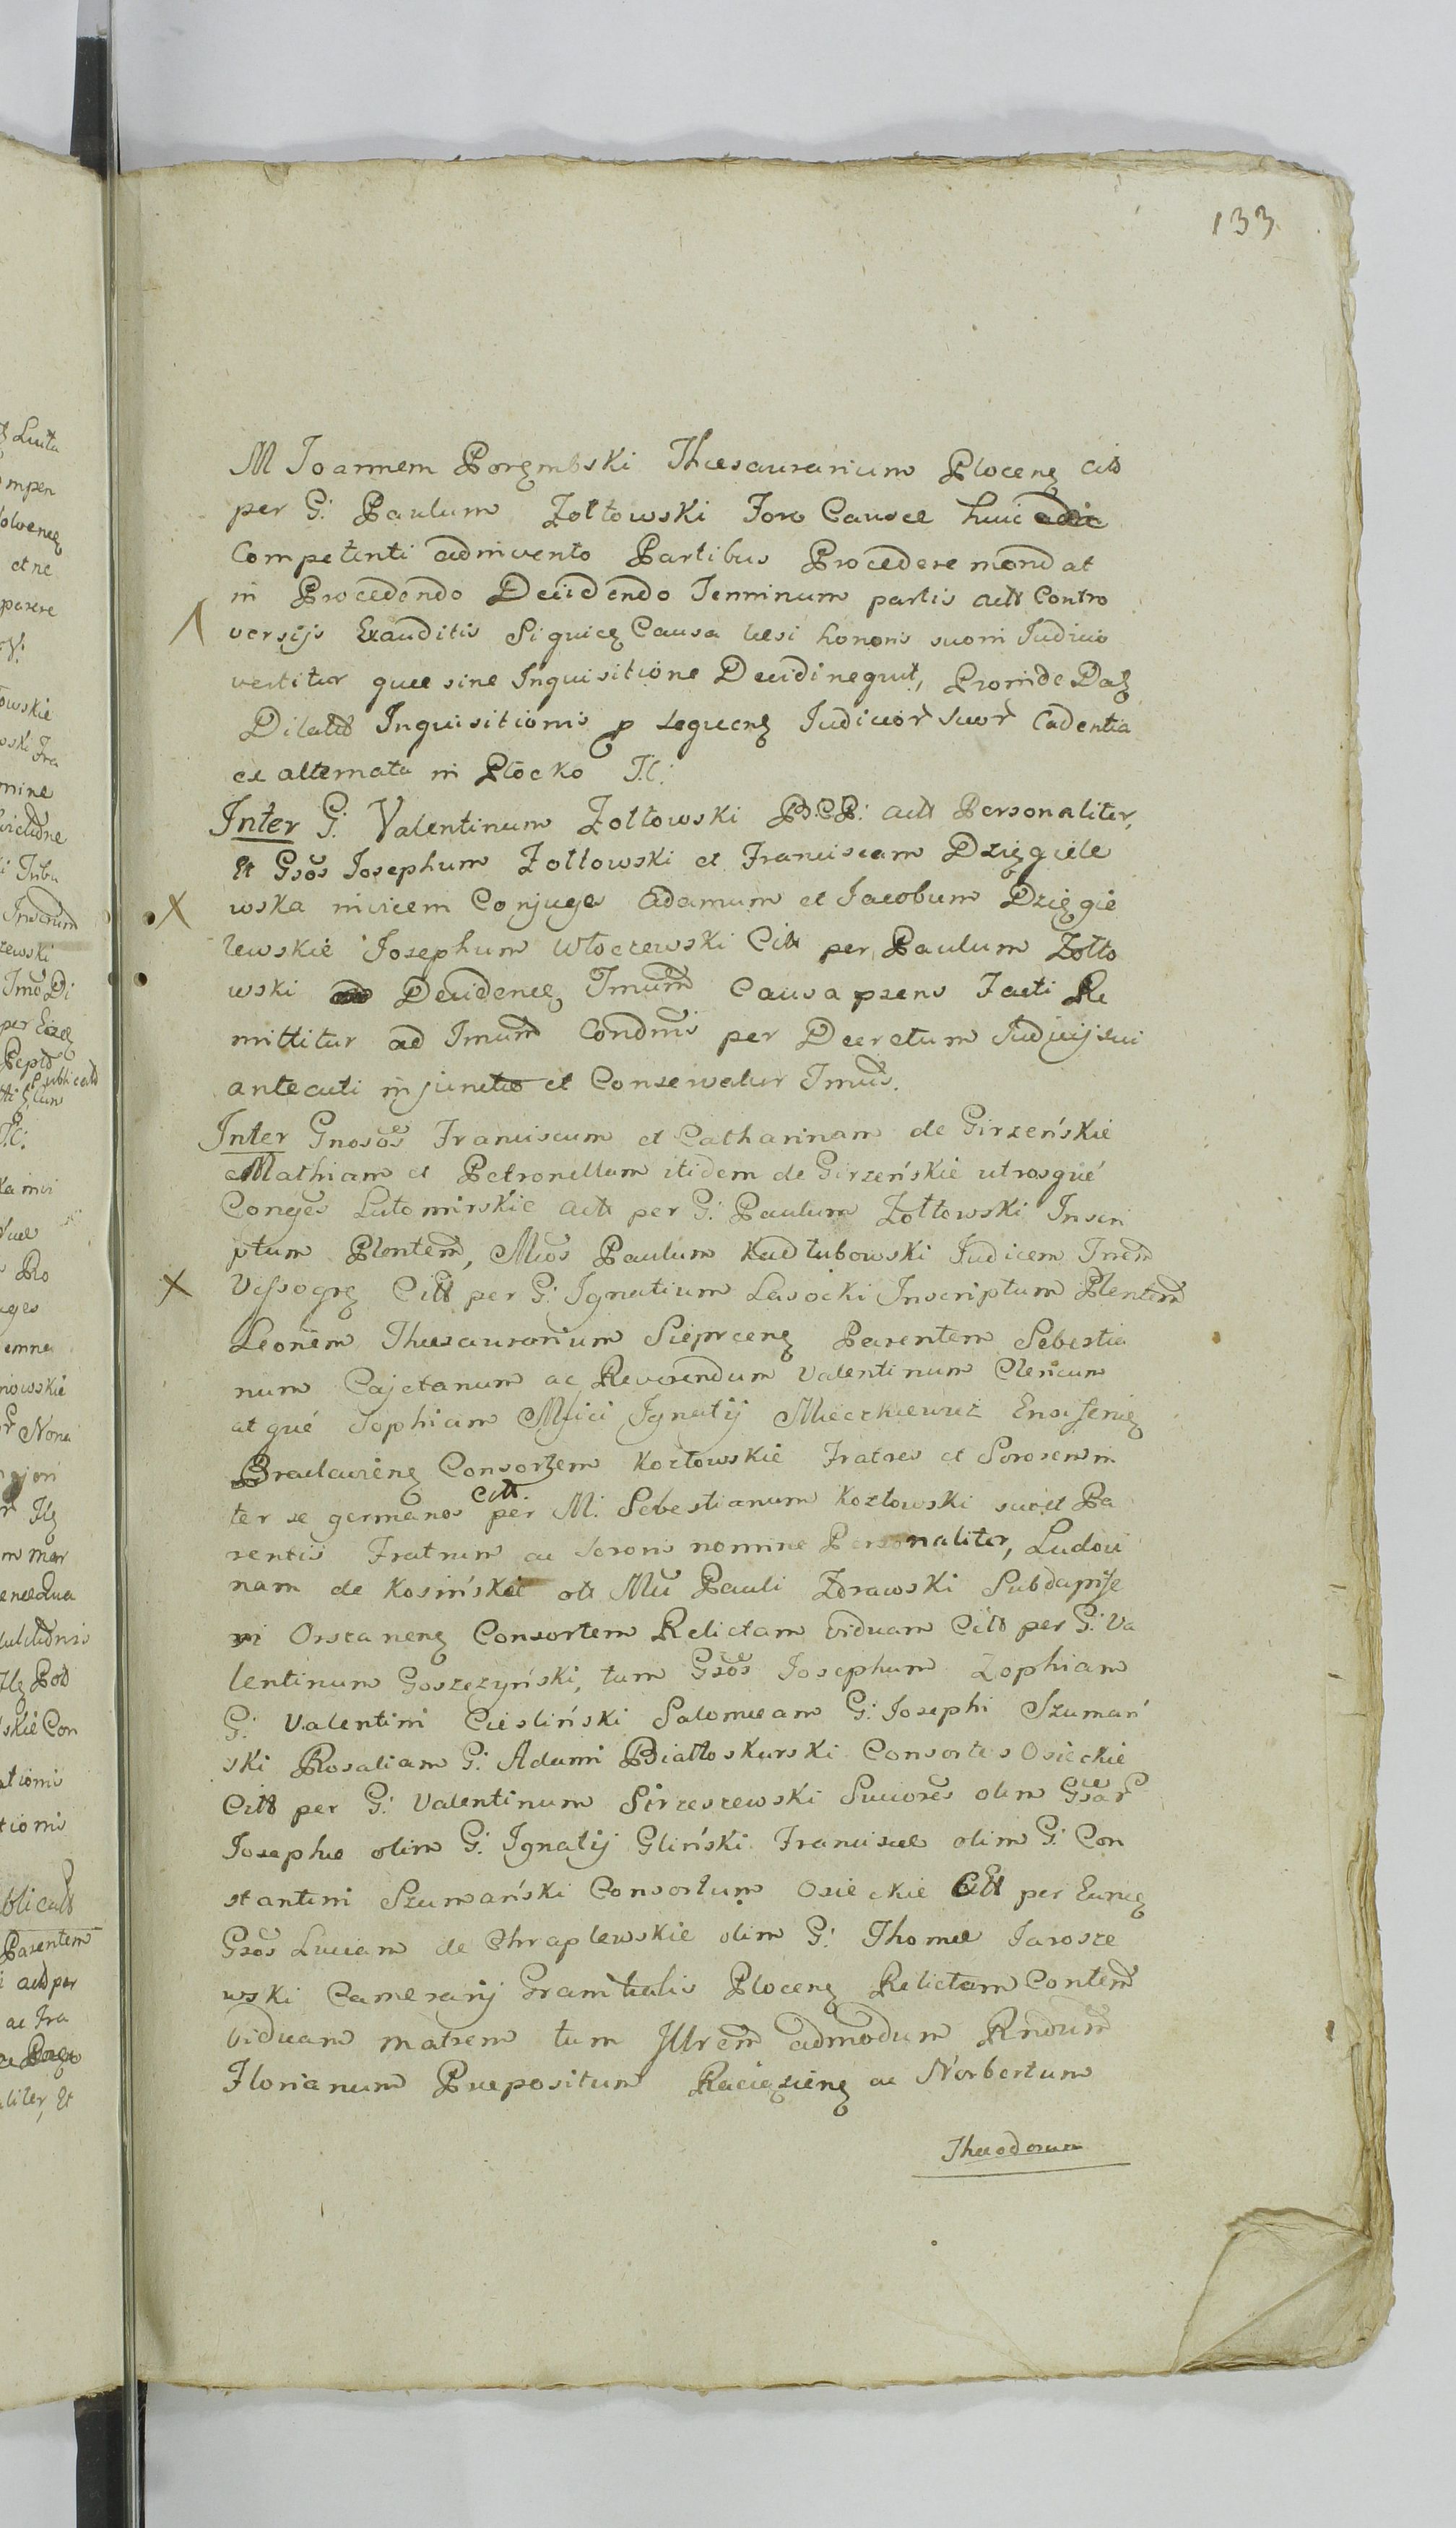 133
M Joannem Porембski Thesaurarium Plocen̄ Citt
per G: Paulum Zołtowski Foro Causæ huic
Competenti adinvento Partibus Procedere mandat
in Procedendo Decidendo Terminum partis Actt Contro
versijs Exauditis Siquid Causa læsi honoris suoni Judicio
vertitur quæ sine Inquisitione Decidi nequit, Proinde
Dilatt Inquisitionis p sequen Judicior suor Cadentia
ex alternata in Płocko T.C:
Inter G: Valentinum Zołtowski B.C.P: Actt Personaliter,
Et Gsos Josephum Zołtowski et Franciscam Dzięgiele
wska invicem Conjuges Adamum et Jacobum Dzięgie
lewskie Josephum Włoczewski Citt per Paulum Zołto
wski Deciden Tmum Causa psens Facti Re
mittitur ad Tmum Condnis per Decretum Judicij sui
antecuti injuncto et Conservatur Tmus.
Inter Gnosos Franciscum et Catharinam de Girzeńskie
Mathiam et Petronellam itidem de Girzeńskie utrosque
Conges Lutomirskie Actt per G: Paulum Zołtowski Inscri
ptum Plentem, Mcos Paulum Kadłubowski Judicem
Vissogr Citt per G: Ignatium Lasocki Inscriptum Plentem
Leonem Thesaurarium Sieprcen Parentem Sebestia
num Cajetanum ac Reverendum Valentinum Clericum
at que Sophiam Mfici Ignatij Mieczkiewicz Ensiferi
Braclavien Consortem Kozłowskie Fratres et Sororem in
ter se germanos Citt. per M. Sebestianum Kozłowski suo et Pa
rentis Fratrum ac Sororis nomine Personaliter, Ludovi
nam de Kosińskie ott Mci Pauli Zdrawski Subdapife
ri Orszanen Consortem Relictam viduam Citt per G: Va
lentinum Goszczyński, tum Gsos Josephum Zophiam
G: Valentini Ciesliński Salomeam G: Josephi Szumań
ski Rosaliam G: Adami Białłoskurski Consortes Osieckie
Citt per G: Valentinum Sirzeszewski Succores olim Gsar
Josephæ olim G: Ignatij Gliński Franciscæ olim G: Con
stantini Szumański Consortum Osieckie Citt per Eund
Gsos Luciam de Chraplewskie olim G: Thomæ Jarosze
wski Camerarij Granitialis Plocen Relictam Contem
viduam matrem tum Illrem admodum Rndum
Florianum Præpositum Raciązien ac Norbertum
Theodorum